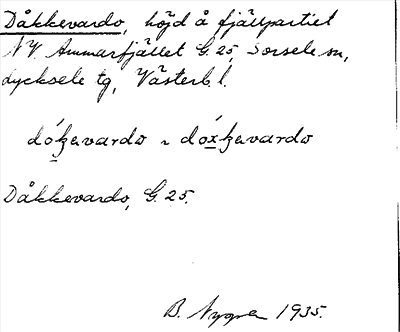 Dåkkevardo, höjd å fjällpartiet
NV. Ammarfjället G. 25, Sorsele sn,
Lycksele tg, Västerb. l.
dókevardo ~ dóxkevardo
Dåkkevardo, G. 25.
B. Nygren 1935.